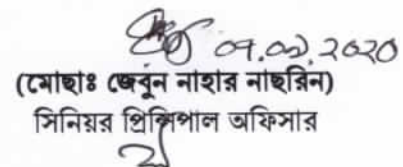 ০৭.০৬.২০২০
(মোছাঃ জেবুন নাহার নাছরিন)
সিনিয়র প্রিন্সিপাল অফিসার